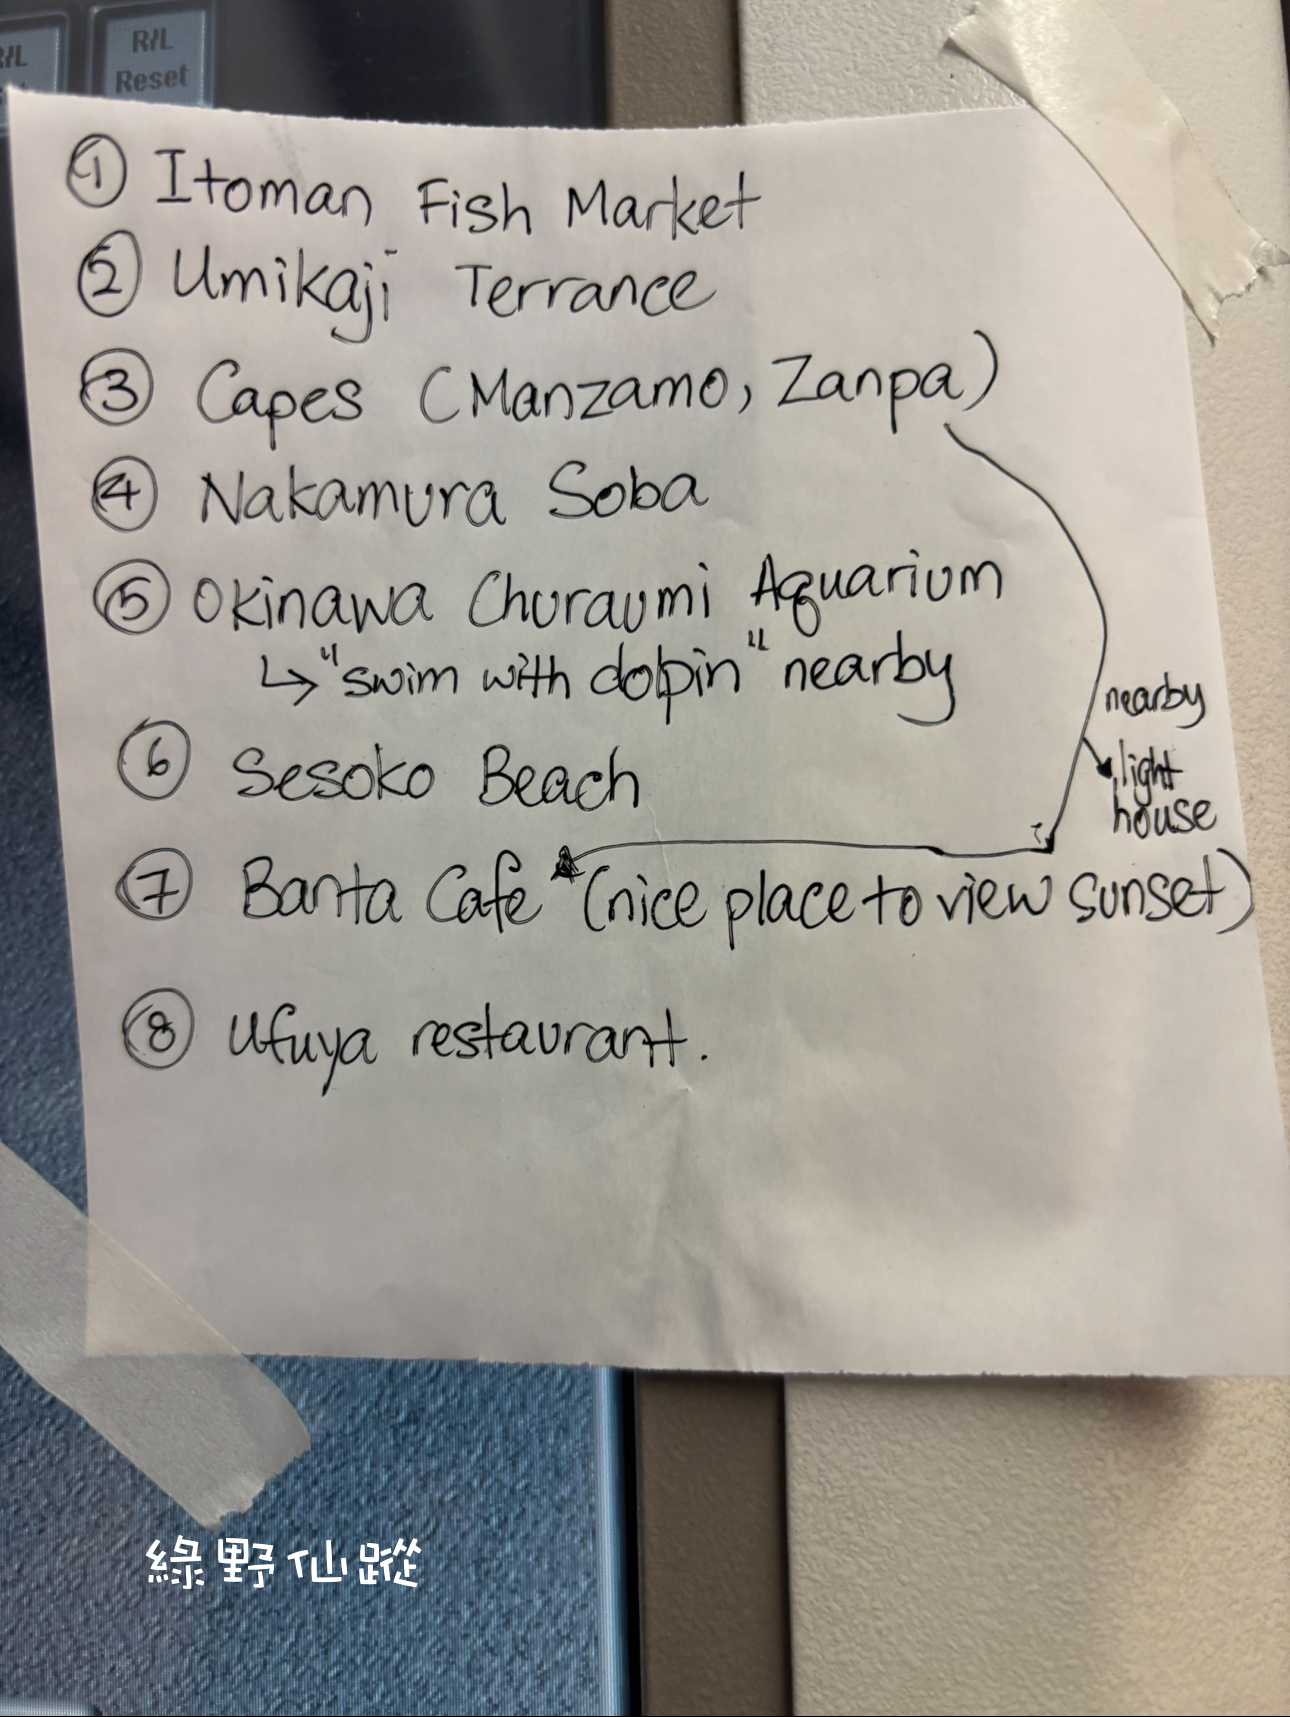 R/L
R/L
Reset
① Itoman Fish Market
② Umikaji Terrance
③ Capes (Manzamo, Zanpa)
④ Nakamura Soba
⑤ Okinawa Churaumi Aquarium
↳ "swim with dolpin" nearby
nearby
light
house
⑥ Sesoko Beach
⑦ Banta Cafe (nice place to view sunset)
⑧ Ufuya restaurant.
綠野仙蹤